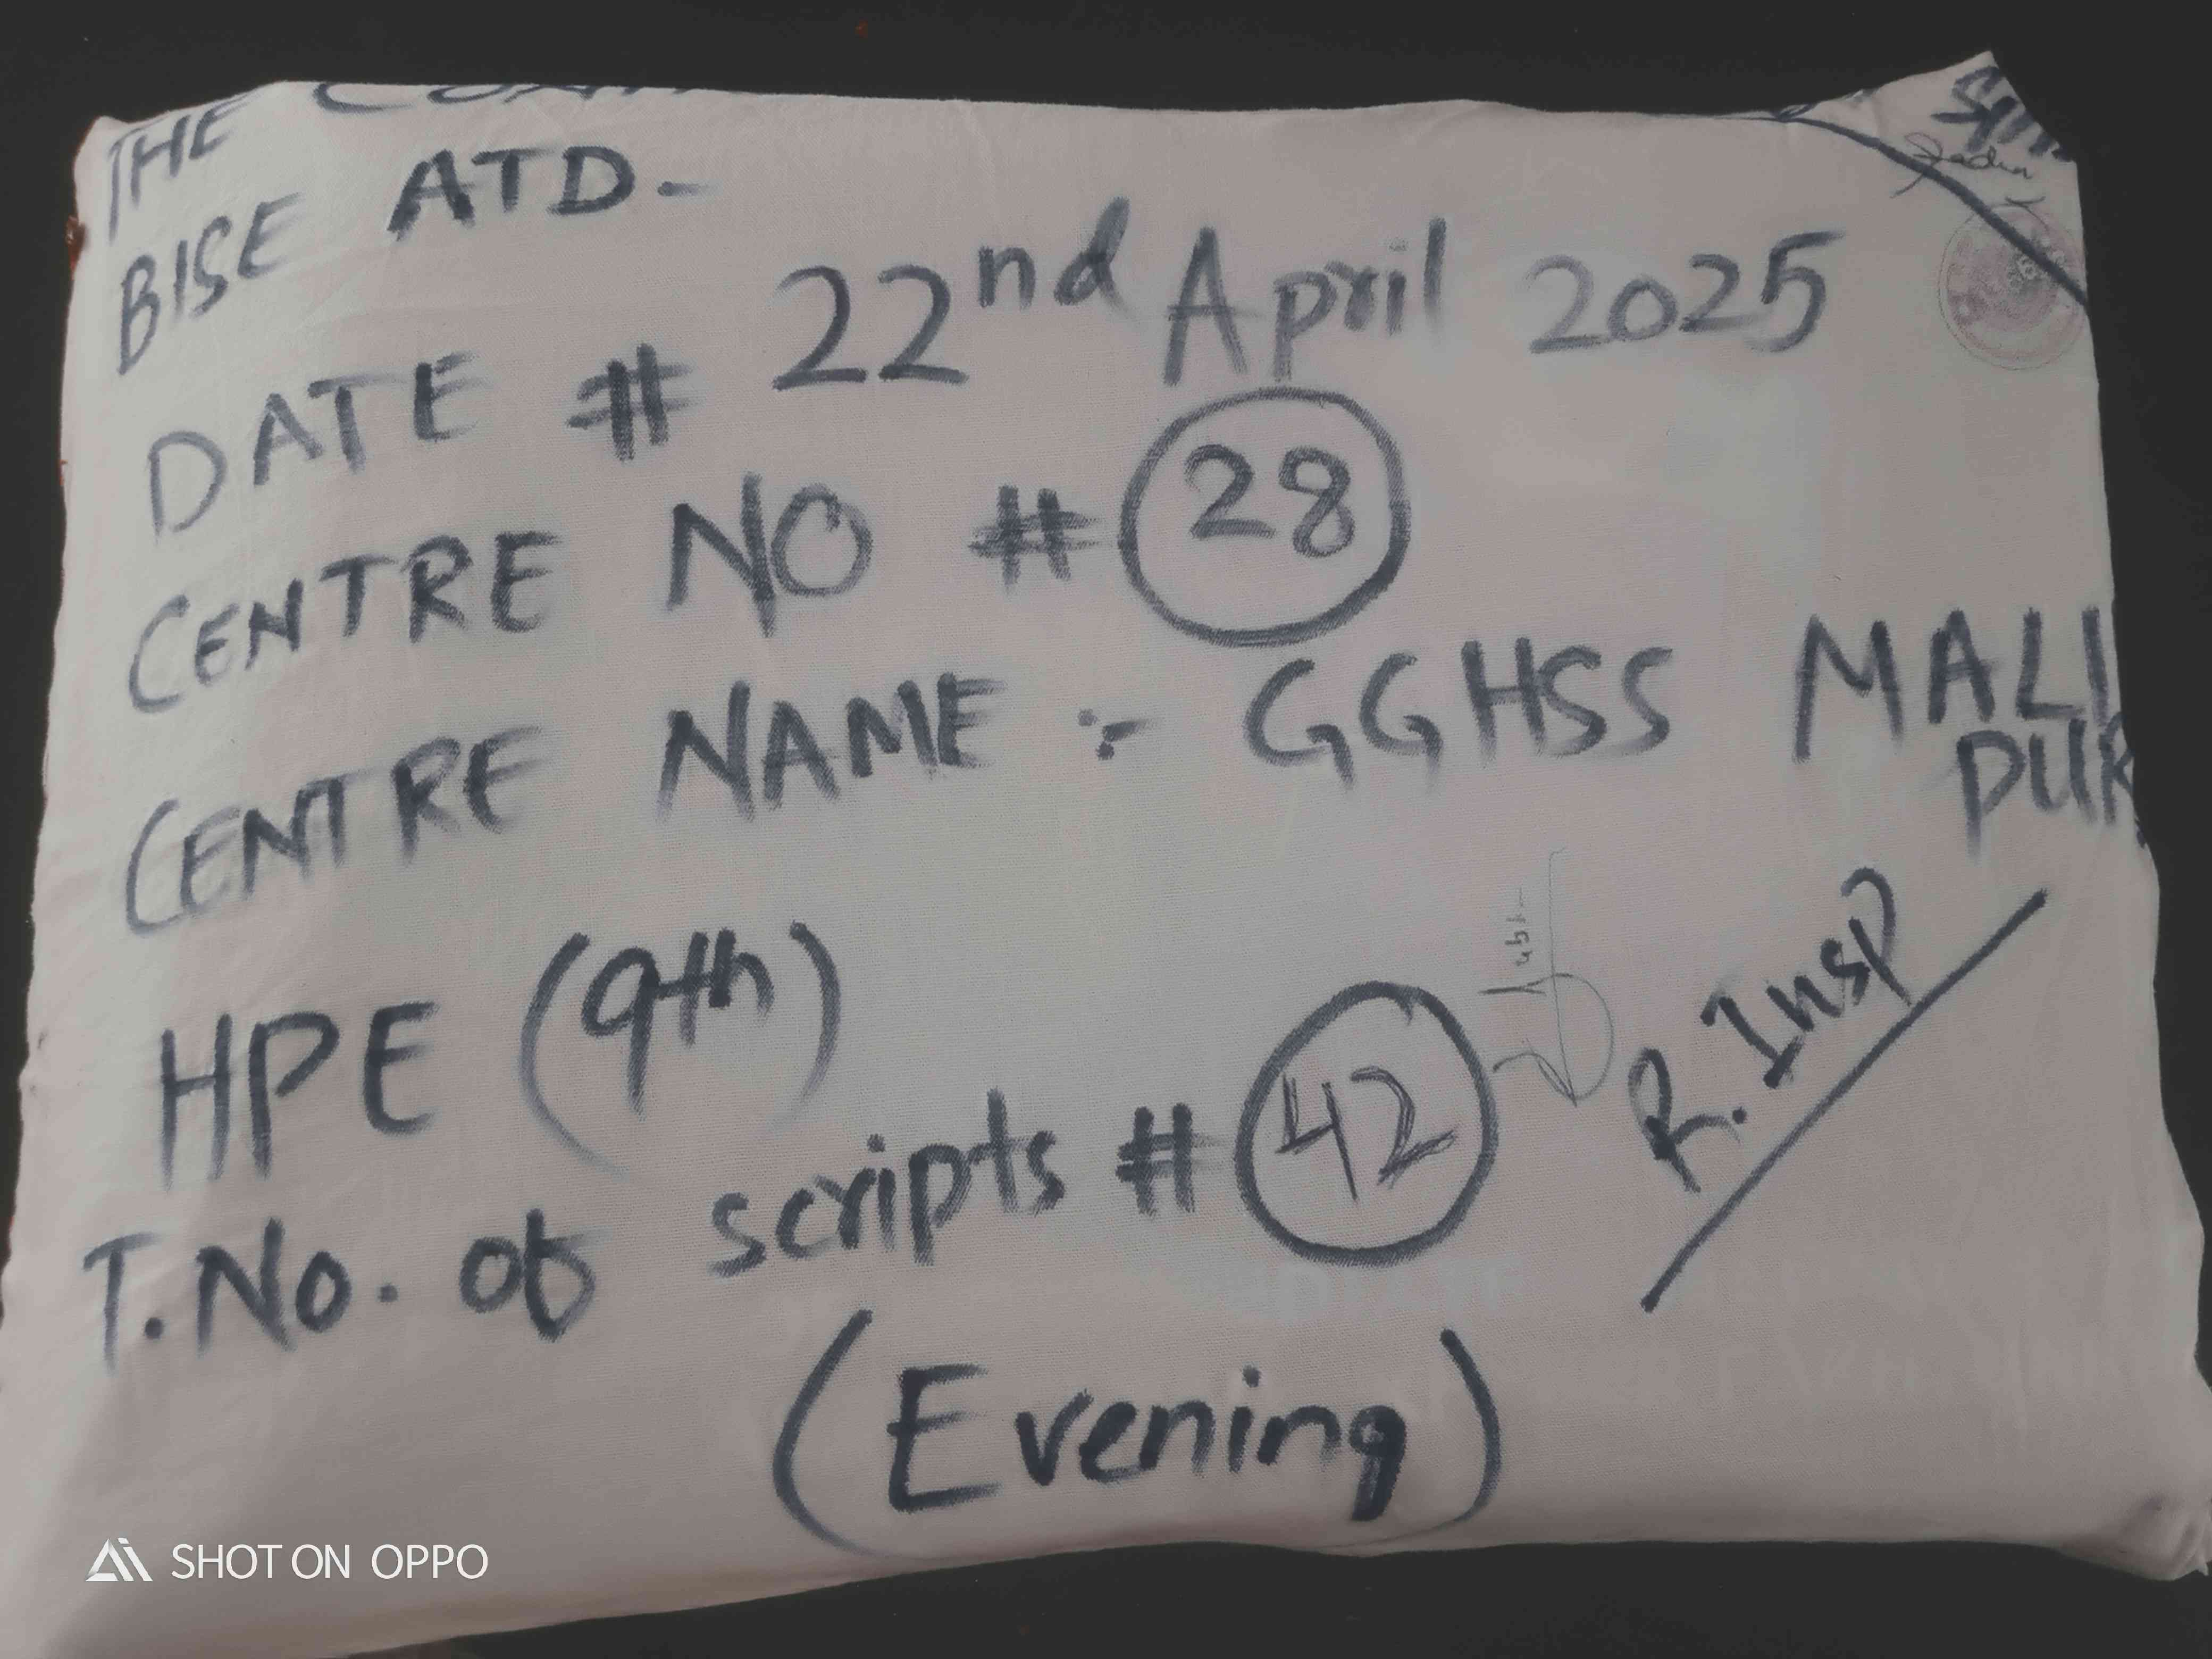 THE
BISE ATD-
DATE # 22nd April 2025
CENTRE NO # 28
CENTRE NAME :- GGHSS MALI
PUR
HPE (9th)
R. Insp
T.No. of scripts # 42
(Evening)
SHOT ON OPPO